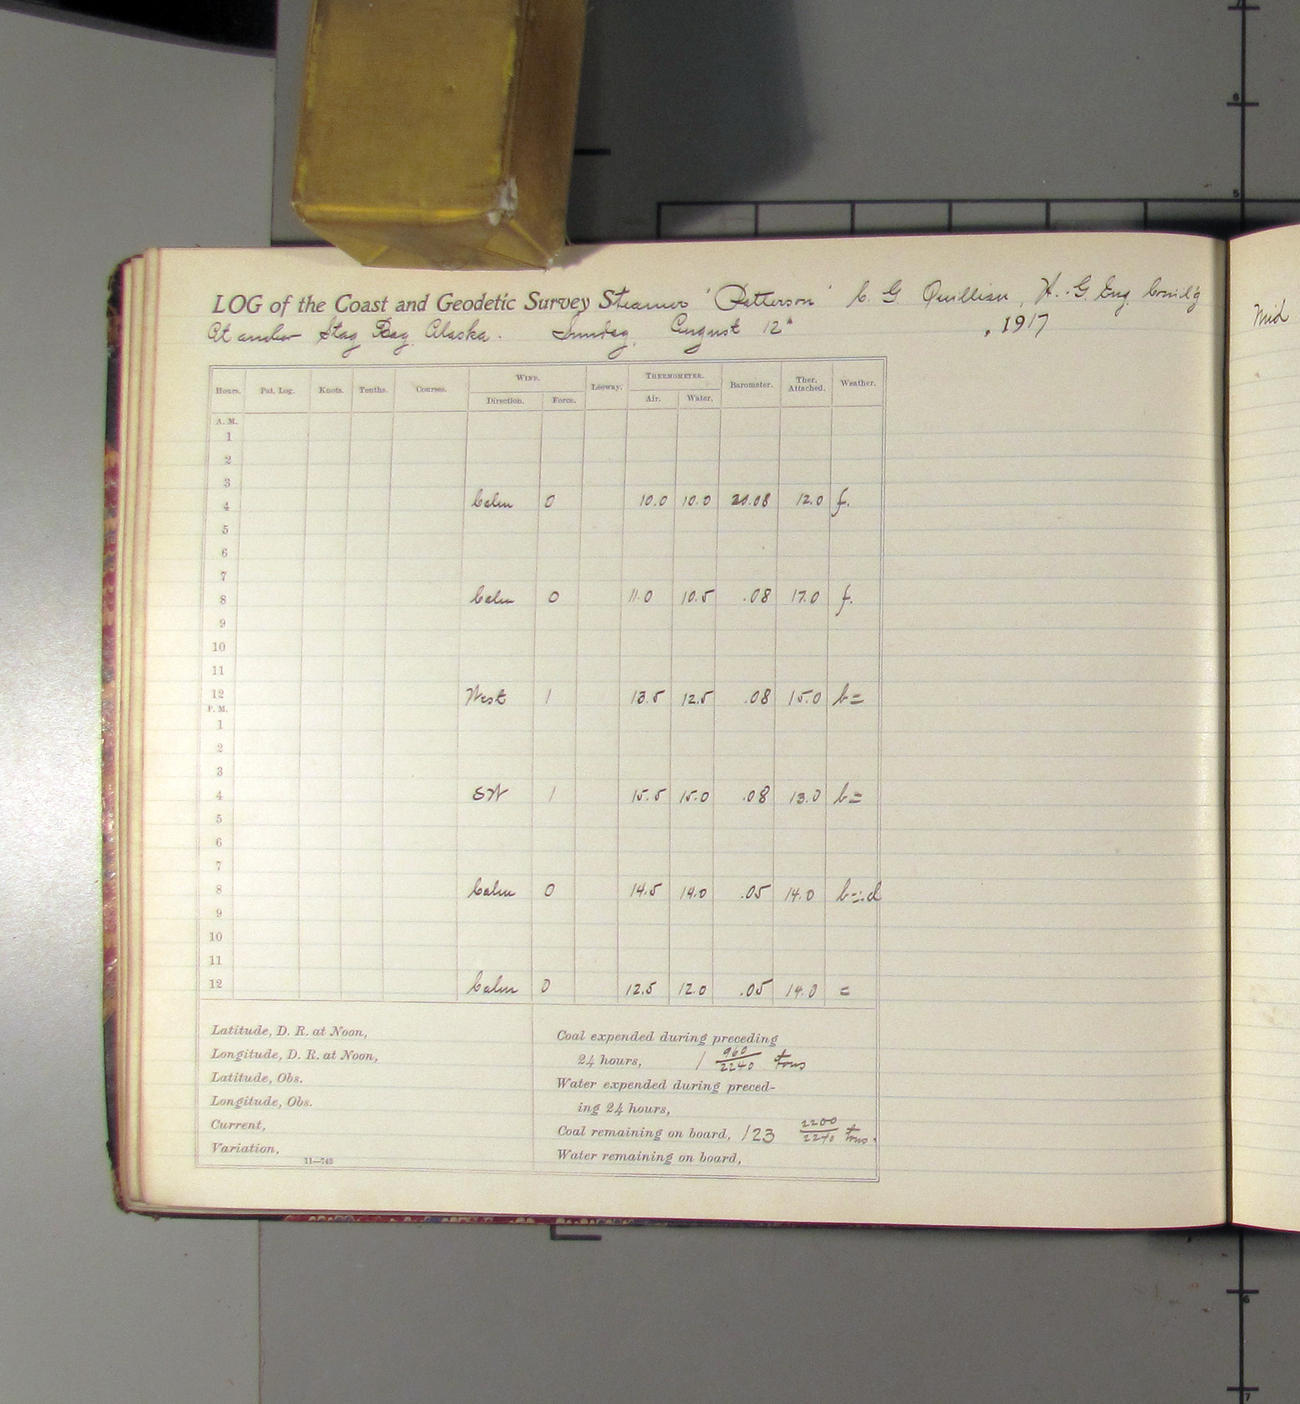 LOG of the Coast and Geodetic Survey Steamer "Patterson" C. G. Quillian, H. & G. Eng. Comd'g
At anchor Stag Bay, Alaska. Sunday, August 12th, 1917
Hours. Pat. Log. Knots. Tenths. Courses. WIND. Leeway. THERMOMETER. Barometer. Ther. Attached. Weather.
Direction. Force. Air. Water.
A. M.
1
2
3
4 Calm 0 10.0 10.0 30.08 12.0 f.
5
6
7
8 Calm 0 11.0 10.5 .08 17.0 f.
9
10
11
12 West 1 13.5 12.5 .08 15.0 b=
P. M.
1
2
3
4 SW 1 15.5 15.0 .08 13.0 b=
5
6
7
8 Calm 0 14.5 14.0 .05 14.0 b=:d
9
10
11
12 Calm 0 12.5 12.0 .05 14.0 =
Latitude, D. R. at Noon,
Longitude, D. R. at Noon,
Latitude, Obs.
Longitude, Obs.
Current,
Variation,
11—743
Coal expended during preceding
24 hours, 1 960/2240 tons
Water expended during preced-
ing 24 hours,
Coal remaining on board, 123 2200/2240 tons.
Water remaining on board,
Mid
6
5
6
7